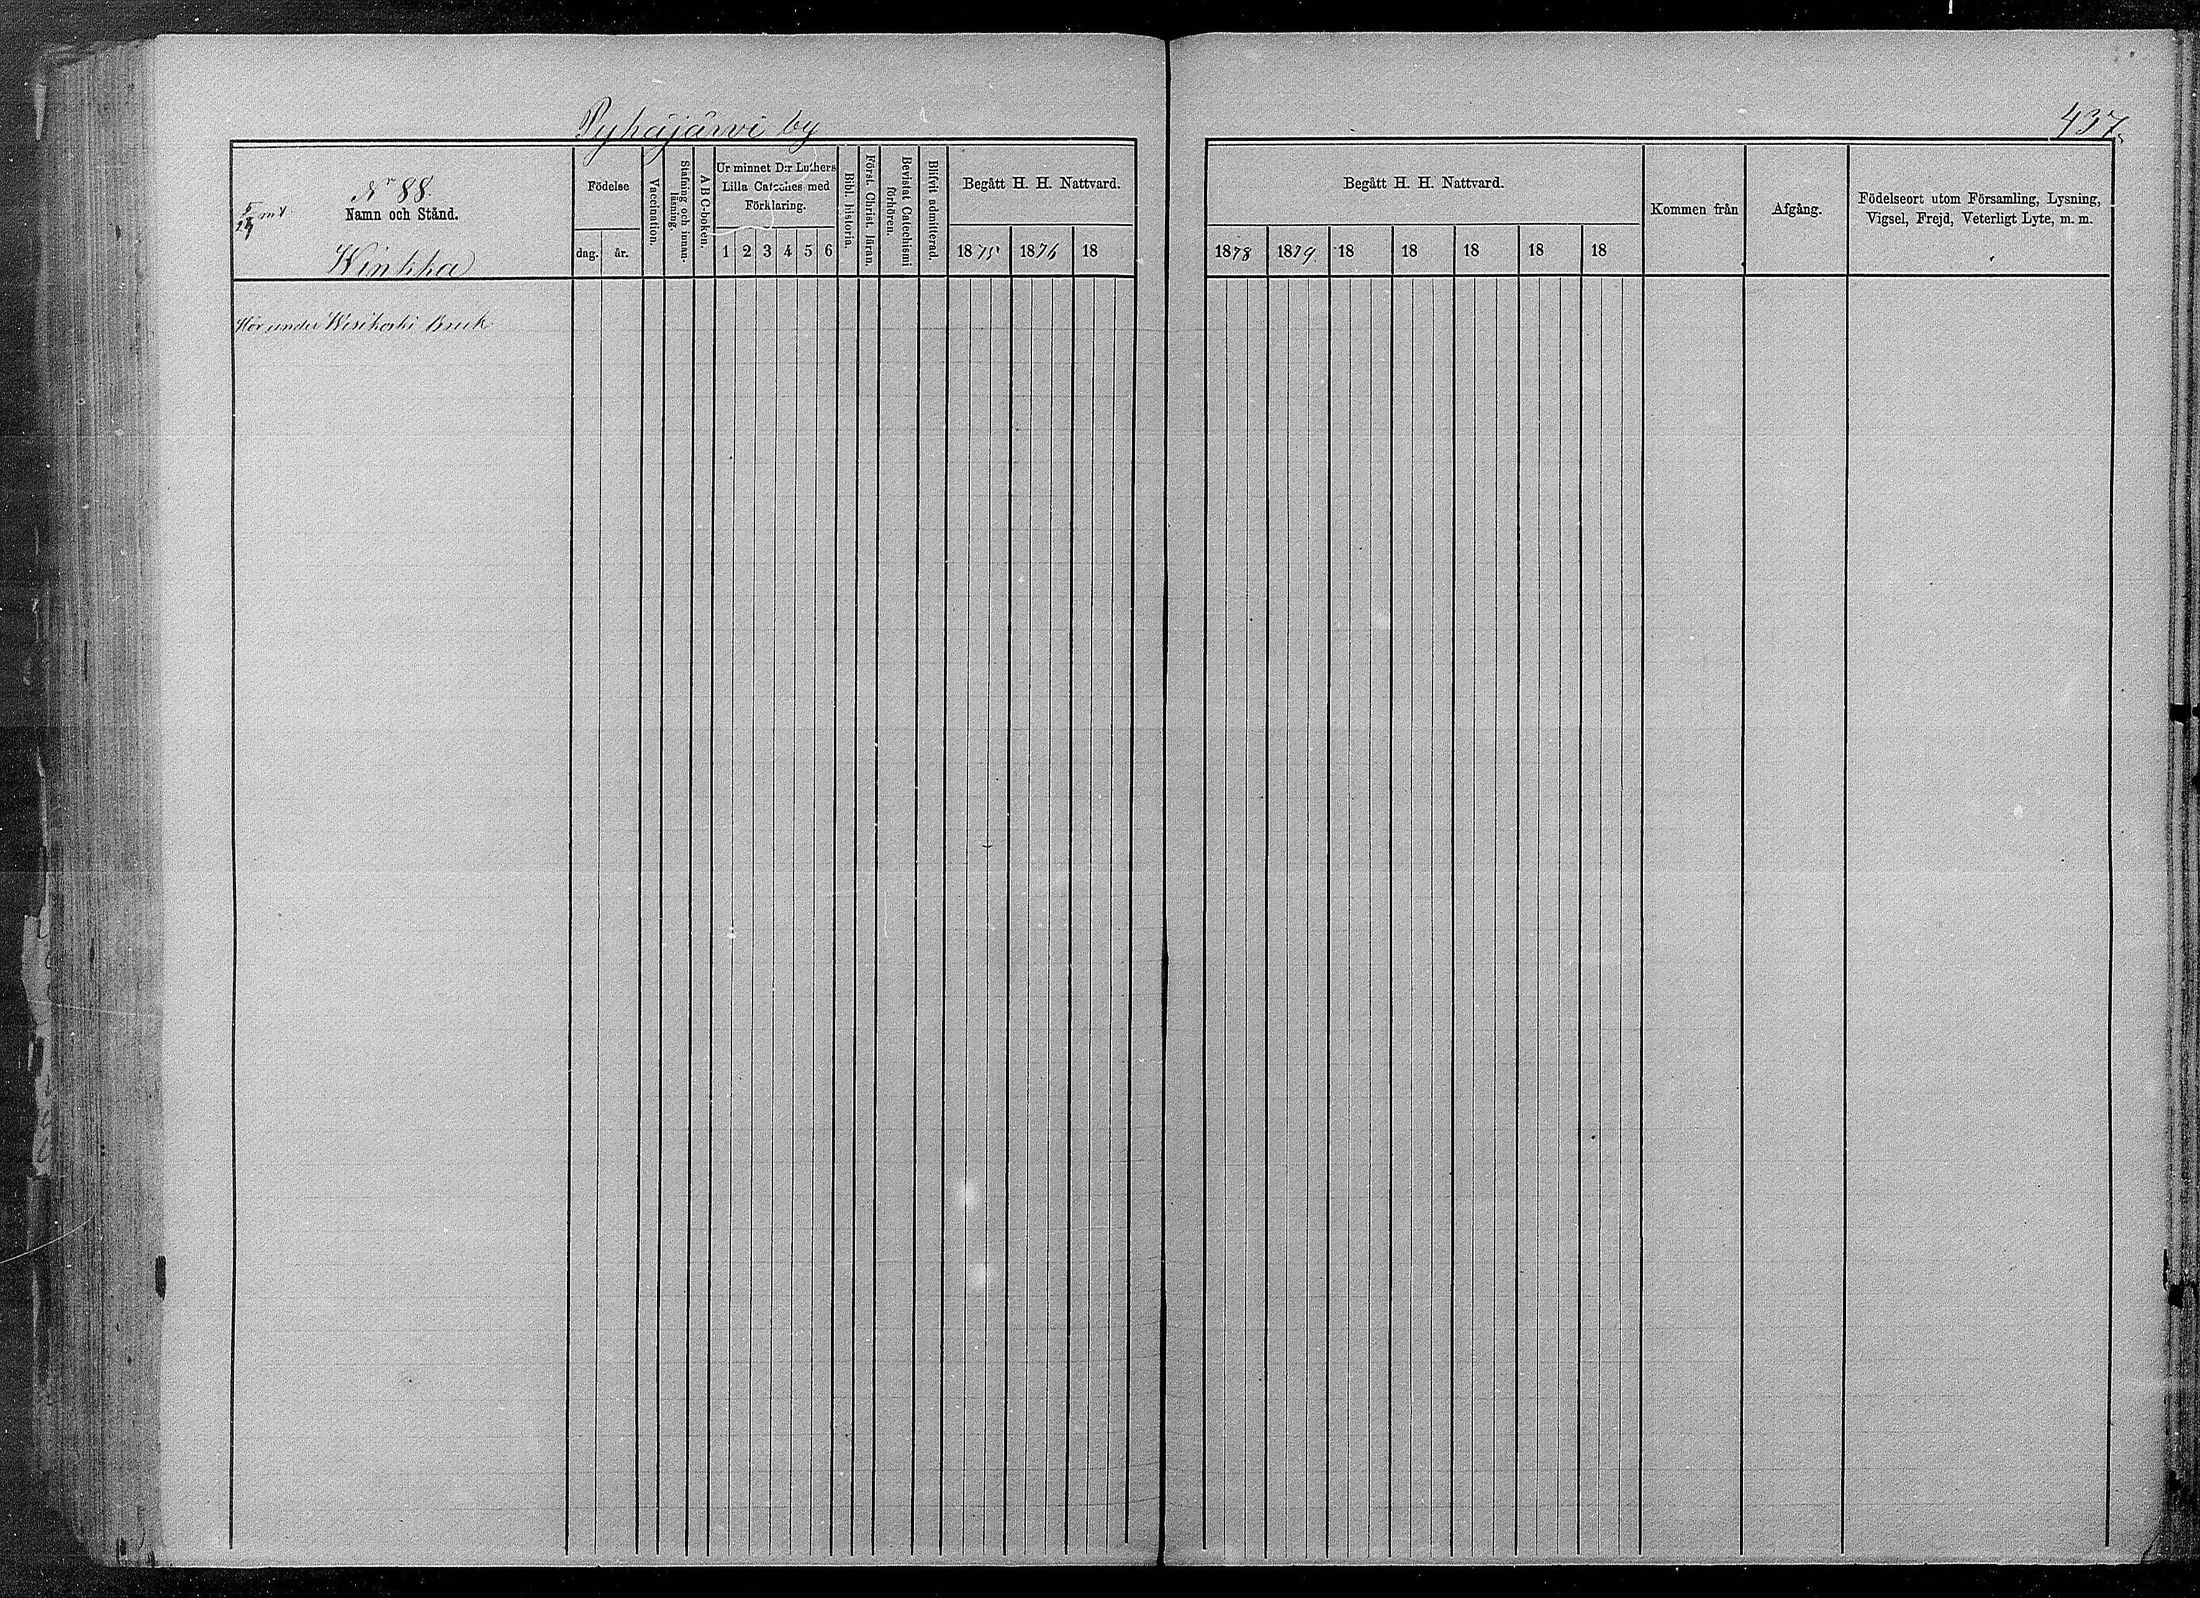 Pyhäjärvi by
437.
Nr 88
5/24 mt
Namn och Stånd.
Winkka
Födelse
dag.
år.
Vaccination.
Stafning och innan-
läsning.
A B C-boken.
Ur minnet D:r Luthers
Lilla Cateches med
Förklaring.
1 2 3 4 5 6
Bibl. historia.
Först. Christ. läran.
Bevistat Catechismi
förhören.
Blifvit admitterad.
Begått H. H. Nattvard.
1875 1876 18
Begått H. H. Nattvard.
1878 1879 18 18 18 18 18
Kommen från
Afgång.
Födelseort utom Församling, Lysning,
Vigsel, Frejd, Veterligt Lyte, m. m.
Hör under Wesikoski Bruk